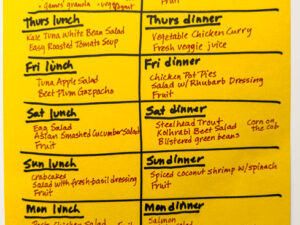 granola
Fruit
Thurs lunch
Kale Tuna White Bean Salad
Easy Roasted Tomato Soup
Thurs dinner
Vegetable Chicken Curry
Fresh veggie juice
Fri lunch
Tuna Apple Salad
Beet Plum Gazpacho
Fri dinner
Chicken Pot Pies
Salad w/ Rhubarb Dressing
Fruit
Sat lunch
Egg Salad
Asian Smashed Cucumber Salad
Fruit
Sat dinner
Steelhead Trout
Kolhrabi Beet Salad
Blistered green beans
Corn on
the cob
Sun lunch
Crabcakes
Salad with fresh basil dressing
Fruit
Sun dinner
Spiced coconut shrimp w/spinach
Fruit
Mon lunch
Chicken Salad
Mon dinner
Salmon